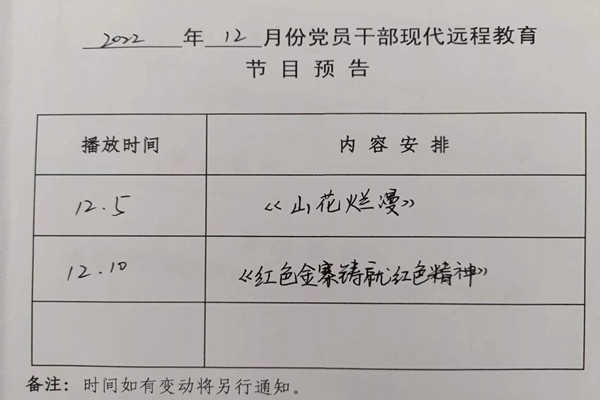 2022 年 12 月份党员干部现代远程教育
节目预告
播放时间 内容安排
12.5 《山花烂漫》
12.10 《红色金寨铸就红色精神》
备注：时间如有变动将另行通知。